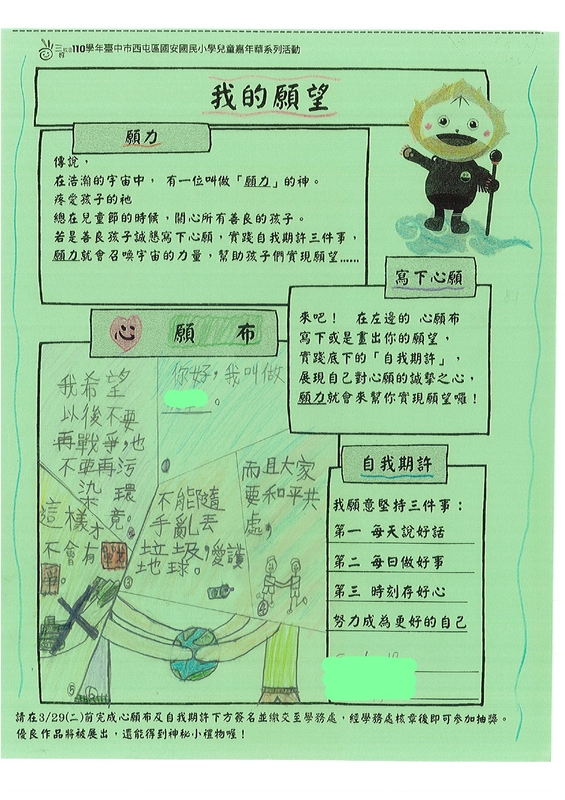 110學年臺中市西屯區國安國民小學兒童嘉年華系列活動
我的願望
願力
傳說，
在浩瀚的宇宙中， 有一位叫做「願力」的神。
疼愛孩子的祂
總在兒童節的時候，關心所有善良的孩子。
若是善良孩子誠懇寫下心願，實踐自我期許三件事，
願力就會召喚宇宙的力量，幫助孩子們實現願望……
寫下心願
來吧！ 在左邊的 心願布
寫下或是畫出你的願望，
實踐底下的「自我期許」，
展現自己對心願的誠摯之心，
願力就會來幫你實現願望囉！
心 願 布
你好，我叫做
。
我希望
以後不要
再戰爭，也
不要再污
染 環
竟。
不能隨
手亂丟
垃圾，愛護
地球。
而且大家
要和平共
處，
這樣才
不會有戰
爭。
自我期許
我願意堅持三件事：
第一 每天說好話
第二 每日做好事
第三 時刻存好心
努力成為更好的自己
請在3/29(二)前完成心願布及自我期許下方簽名並繳交至學務處，經學務處核章後即可參加抽獎。
優良作品將被展出，還能得到神秘小禮物喔！